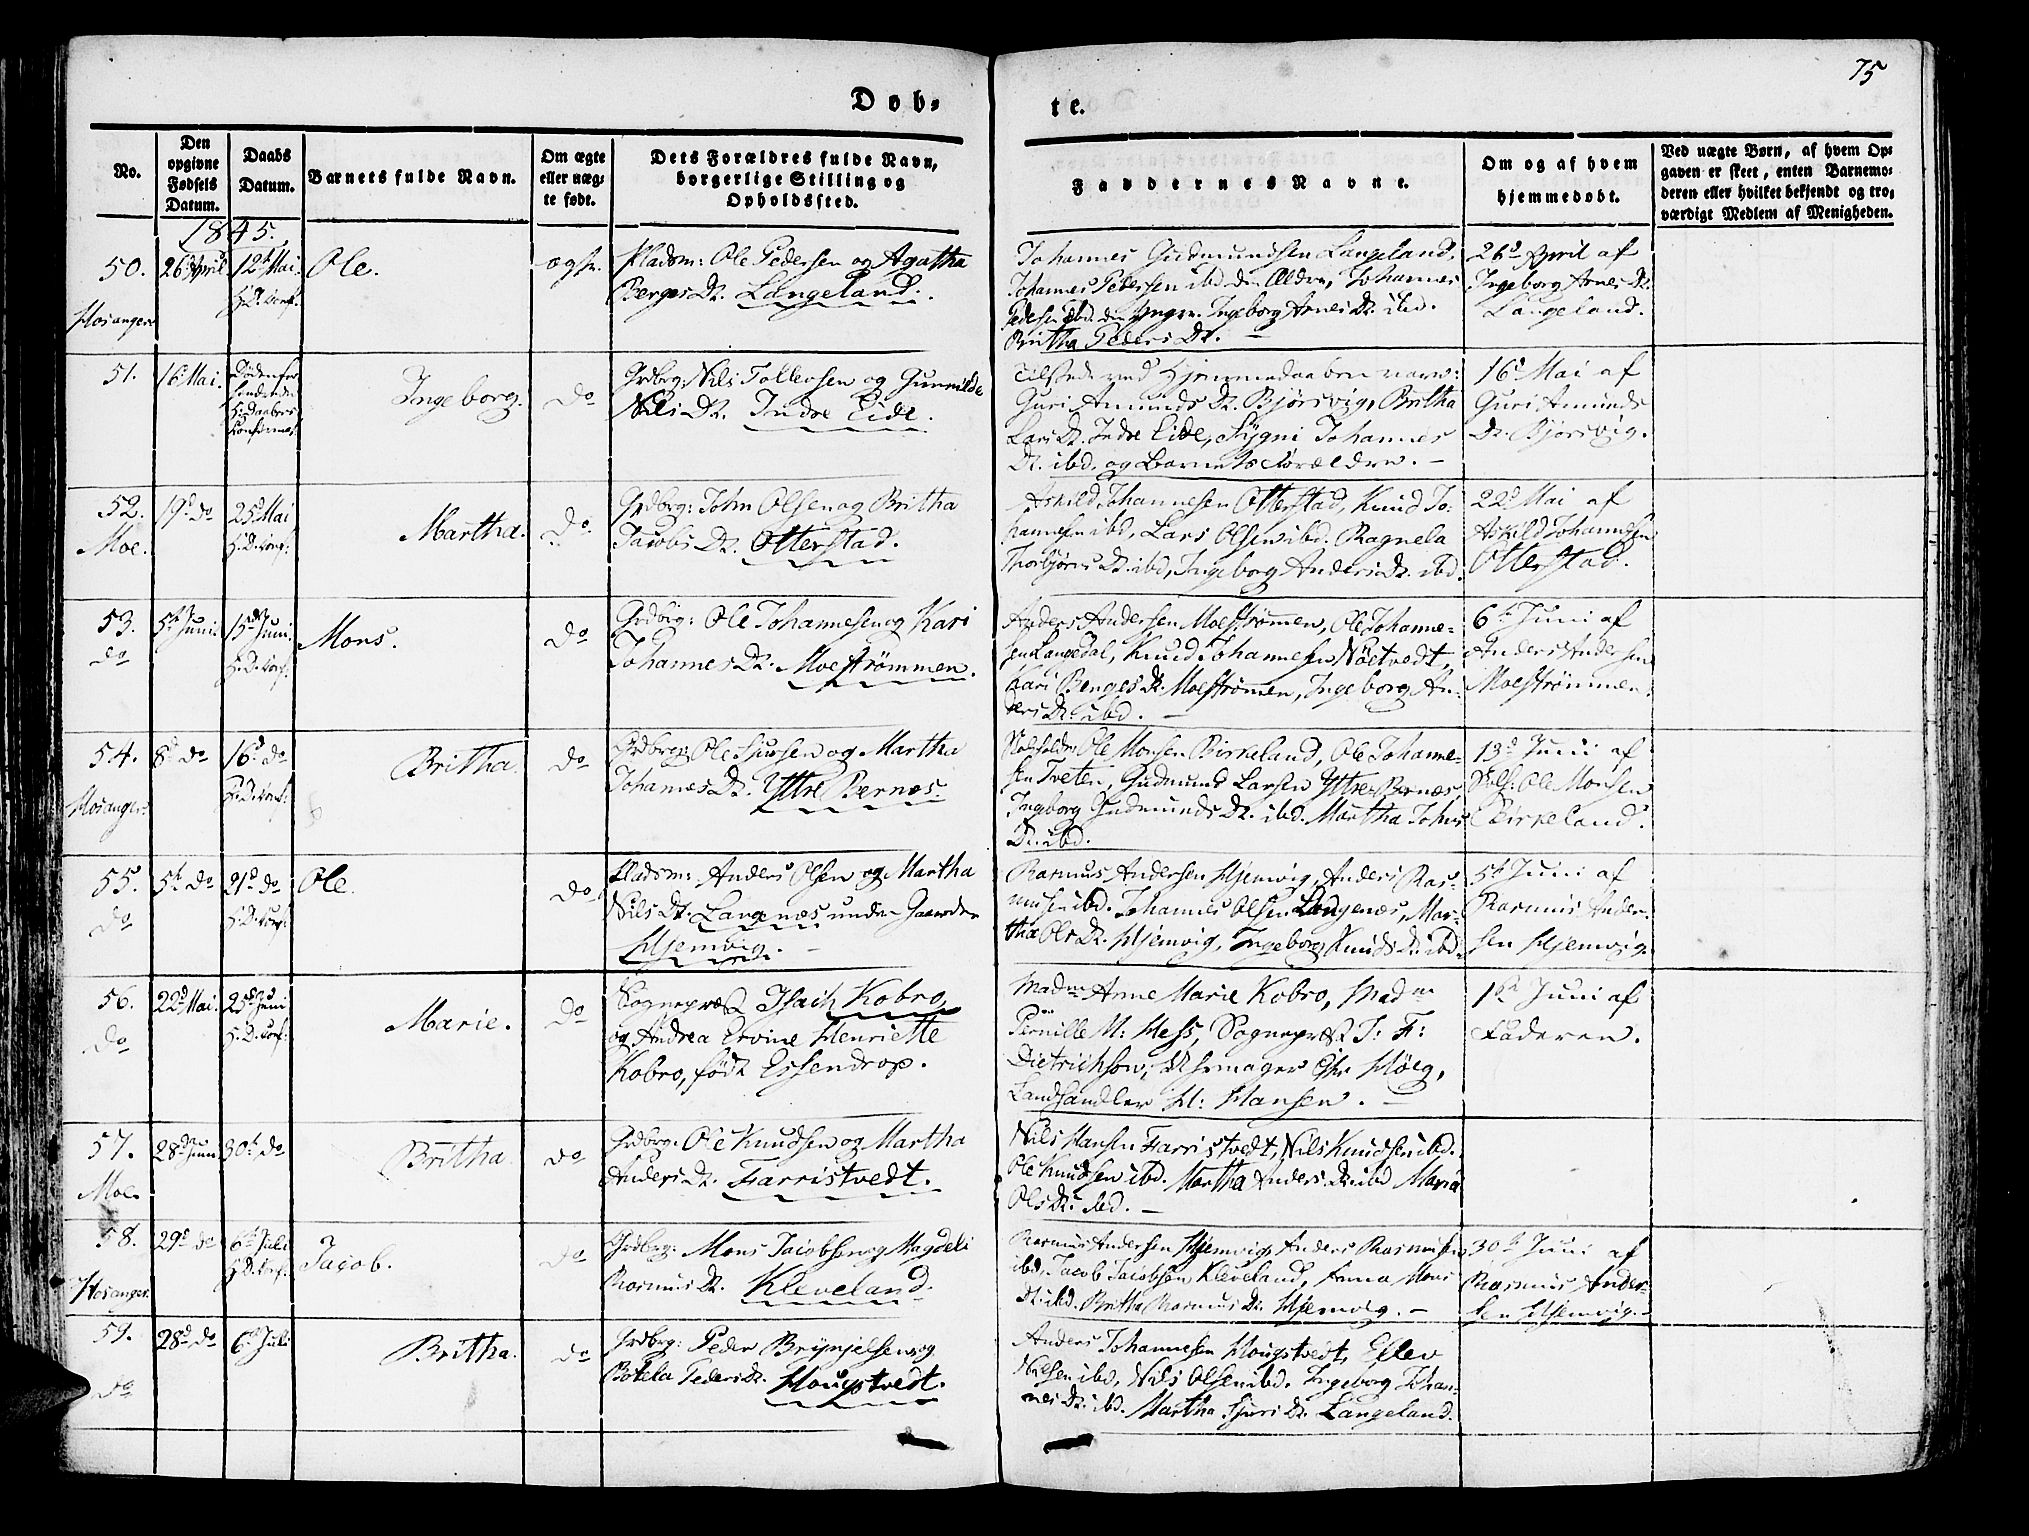 75
Døb-
te.
No.
Den
opgivne
Fødsels
Datum.
Daabs
Datum.
Barnets fulde Navn.
Om ægte
eller uæg-
te født.
Dets Forældres fulde Navn,
borgerlige Stilling og
Opholdssted.
Faddernes Navne.
Om og af hvem
hjemmedøbt.
Ved uægte Børn, af hvem Op-
gaven er skeet, enten Barnemo-
deren eller hvilket bekjendt og tro-
værdigt Medlem af Menigheden.
1845.
50.
Hosanger
26 April
12te Mai
H. D. Conf.
Ole.
ægte.
Pladsm: Ole Pedersen og Agatha
Berges Dr. Langeland.
Johannes Gudmundsen Langeland,
Johannes Pedersen ibd. den Ældre, Johannes
Pedersen ibd. den Yngre. Ingeborg Arnes Dr. ibd.
Britha Peders Dr.
26d April af
Ingeborg Arnes Dr.
Langeland.
51.
16 Mai.
Ingeborg.
do
Grdbrg: Nils Tollevsen og Gunnilde
Nils Dr. Indre Eide.
Tilstede ved Hjemmedaaben varw:
Guri Amunds Dr. Bjørsvig, Britha
Lars Dr. Indre Eide, Sygni Johannes
Dr. ibd. og Barnets Forældre.
16d Mai af
Guri Amunds
Dr. Bjørsvig.
52.
Moe.
19d do
25d Mai
H. D. Conf:
Martha.
do
Grdbrg: John Olsen og Britha
Jacobs Dr. Otterstad.
Askild Johannesen Otterstad, Knud Jo-
hannesen ibd, Lars Olsen ibd. Ragnela
Thorbjørns Dr. ibd, Ingeborg Anders Dr. ibd.
22d Mai af
Askild Johannesen
Otterstad.
53.
do
5te Juni.
15de Juni.
H. D. Conf.
Mons.
do
Grdbrg: Ole Johannesen og Kari
Johannes Dr. Moestrømmen.
Anders Andersen Moestrømmen, Ole Johanne-
sen Langedal, Knud Johannesen Nøetvedt,
Kari Benges Dr. Moestrømen, Ingeborg An-
ders Dr. ibd.
6te Juni af
Anders Andersen
Moestrømmen.
54.
Hosanger.
8d do
16d do
H. D. Conf:
Britha.
do
Grdbrg: Ole Sjursen og Martha
Johanes Dr. Yttre Bernes.
Skoleholdr: Ole Monsen Birkeland, Ole Johanne-
sen Tveten, Gudmund Larsen Yttre Bernæs,
Ingeborg Gudmunds Dr. ibd. Martha Johns
Dr. ibd.
13d Juni af
Skolh: Ole Monsen
Birkeland.
55.
do
5te do
21d do
H. D. Conf.
Ole.
do
Pladsm: Anders Olsen og Martha
Nils Dr. Langenæs under Gaarden
Hjemvig.
Rasmus Andersen Hjemvig, Anders Ras-
musen ibd. Johannes Olsen Langenæs, Mar-
tha Ols Dr. Hjemvig, Ingeborg Knuds Dr. ibd.
5te Juni af
Rasmus Ander-
sen Hjemvig.
56.
do
22d Mai.
25d Juni
H. D. Conf:
Marie.
do
Sognepræst Isach Kobro
og Andrea Ervine Henriette
Kobro, født Essendrop.
Madm Anne Marie Kobro, Madm
Pernille M: Hess, Sognepræst J: F:
Dietrichson, Uhrmager Chr Høeg,
Landhandler H: Hansen.
1te Juni af
Faderen.
57.
Moe.
28d Juni
30te do
Britha.
do
Grdbrg: Ole Knudsen og Martha
Anders Dr. Farristvedt.
Nils Hansen Farristvedt, Nils Knudsen ibd.
Ole Knudsen ibd. Martha Anders Dr. ibd Maria
Ols Dr. ibd.
58.
Hosanger.
29d do
6te Juli
H. D. Conf.
Jacob.
do
Grdbrg: Mons Jacobsen og Magdeli
Rasmus Dr. Kleveland.
Rasmus Andersen Hjemvig, Anders Rasmusen
ibd, Jacob Jacobsen Kleveland, Anna Mons
Dr. ibd. Britha Rasmus Dr. Hjemvig.
30te Juni af
Rasmus Ander-
sen Hjemvig.
59.
do
28d do
6te Juli
Britha.
do
Grdbrg: Peder Brynjelsen og
Botela Peders Dr. Hougstvedt.
Anders Johannesen Hougstvedt, Ellev
Nilsen ibd, Nils Olsen ibd. Ingeborg Johan-
nes Dr. ibd. Martha Sjurs Dr. Langeland.